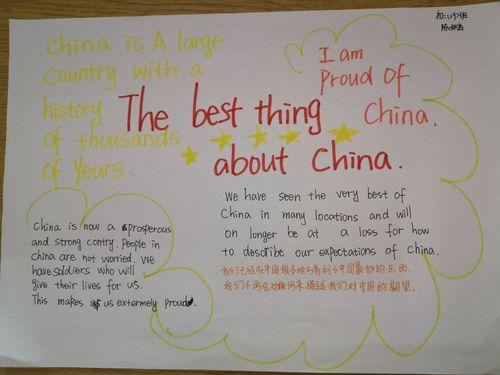 China is A large
country with a
history
of thousands
of Years.
The best thing
about China.
I am
Proud Of
China.
China is now a sprosperous
and strong contry. People in
china are not worried. We
have soldiers who will
give their lives for us.
This makes us extermely proud.
We have seen the very best of
China in many locations and will
on longer be at a loss for how
to describe our expectations of China.
我们已经在中国很多地方看到了中国最好的东西,
我们不再会动摇何来描述我们对中国的期望.